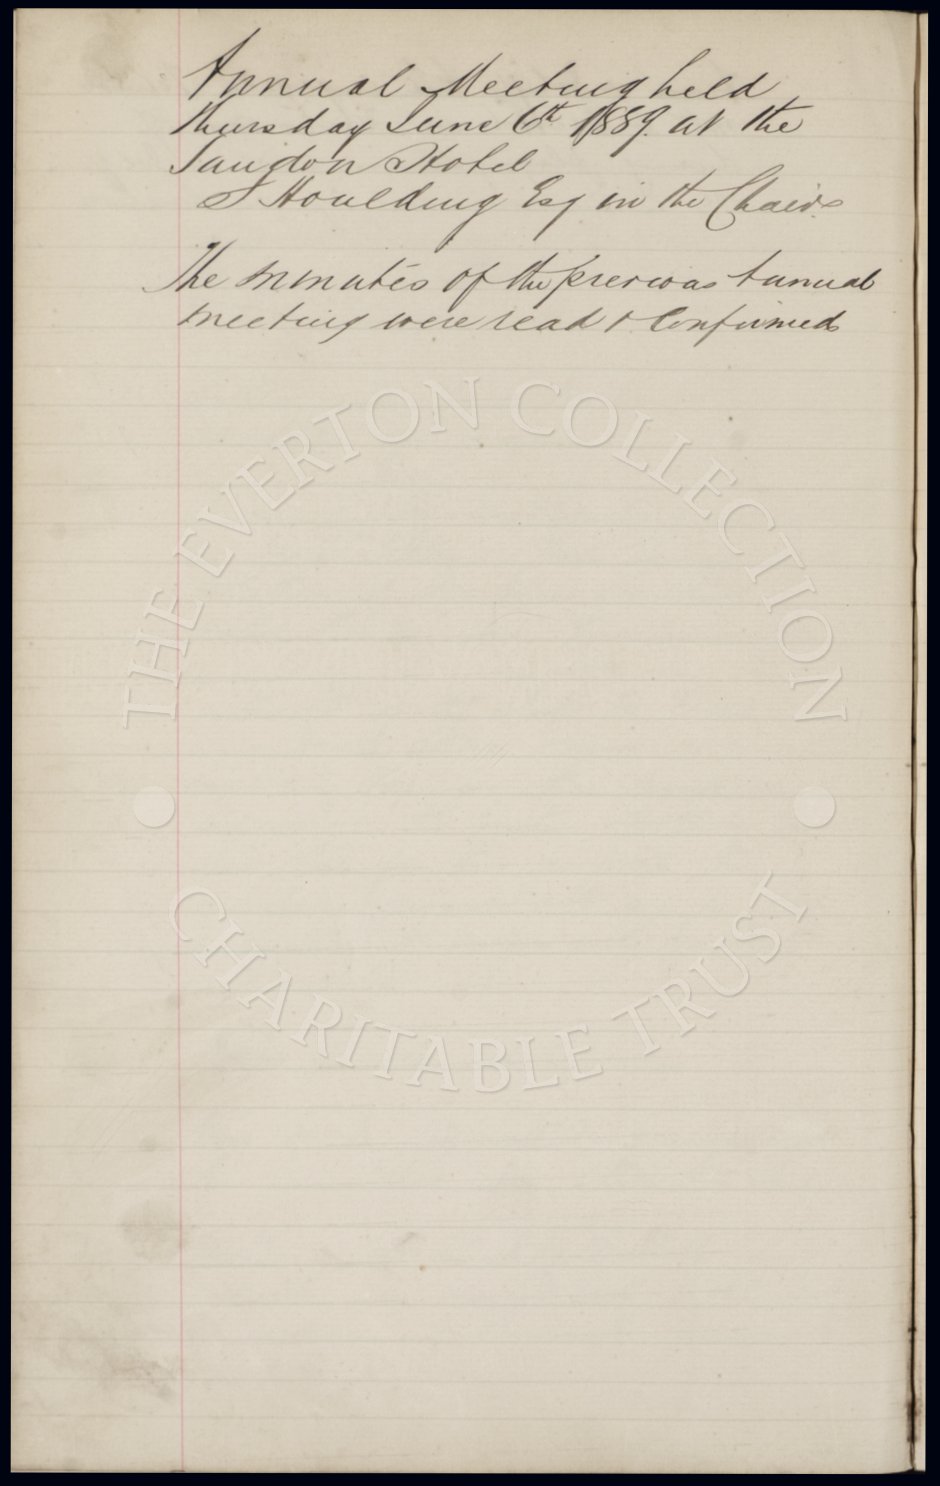 Annual Meeting held
Thursday June 6th 1889. at the
Sandon Hotel
J Houlding Esq in the Chair.
The minutes of the previous Annual
meeting were read & Confirmed
THE EVERTON COLLECTION
CHARITABLE TRUST